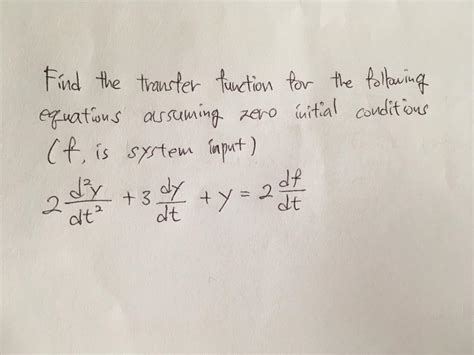 Find the transfer function for the following
equations assuming zero initial conditions
(f, is system input)
2 d²y/dt² + 3 dy/dt + y = 2 df/dt